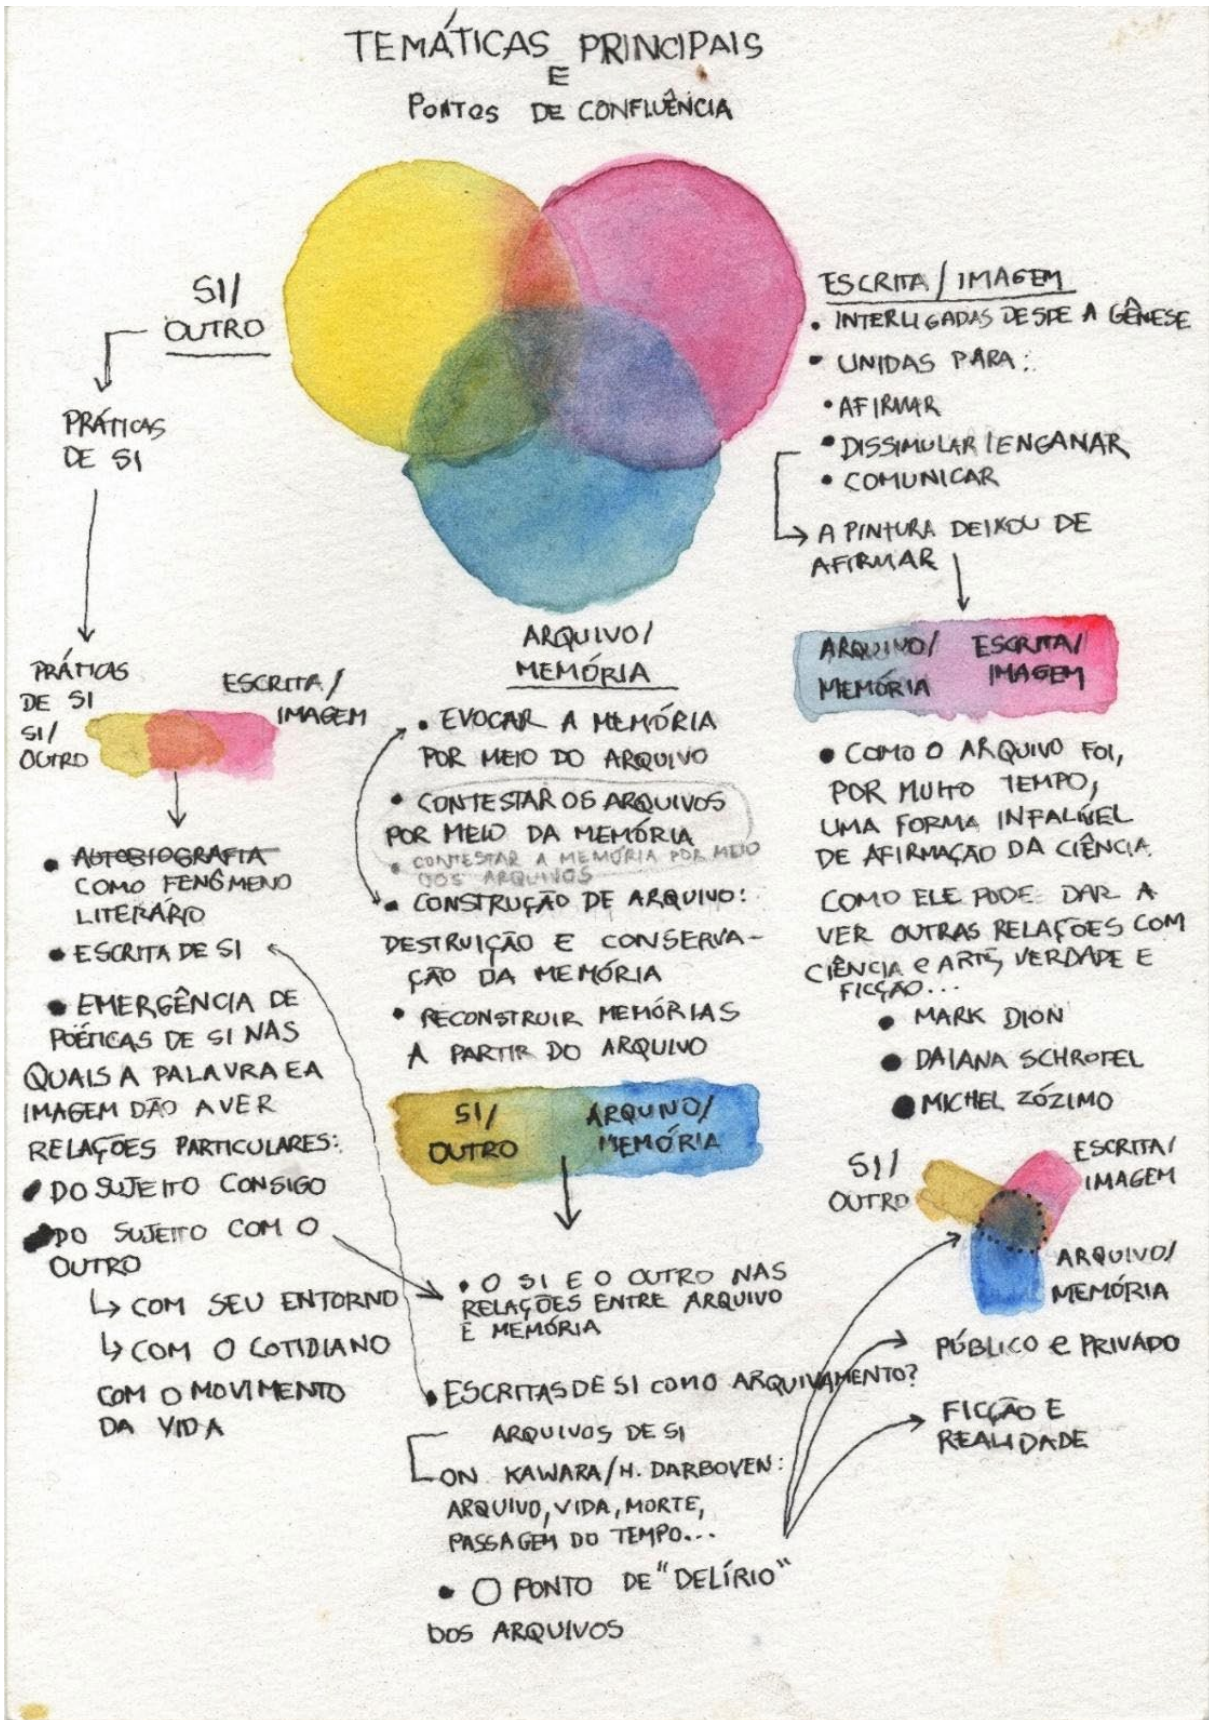 TEMÁTICAS PRINCIPAIS
E
PONTOS DE CONFLUÊNCIA
SI/
OUTRO
PRÁTICAS
DE SI
PRÁTICAS
DE SI
SI/
OUTRO
ESCRITA/
IMAGEM
• AUTOBIOGRAFIA
COMO FENÔMENO
LITERÁRIO
• ESCRITA DE SI
• EMERGÊNCIA DE
POÉTICAS DE SI NAS
QUAIS A PALAVRA E A
IMAGEM DÃO A VER
RELAÇÕES PARTICULARES:
• DO SUJEITO CONSIGO
• DO SUJEITO COM O
OUTRO
↳ COM SEU ENTORNO
↳ COM O COTIDIANO
COM O MOVIMENTO
DA VIDA
ARQUIVO/
MEMÓRIA
• EVOCAR A MEMÓRIA
POR MEIO DO ARQUIVO
• CONTESTAR OS ARQUIVOS
POR MEIO DA MEMÓRIA
• CONTESTAR A MEMÓRIA POR MEIO
DOS ARQUIVOS
• CONSTRUÇÃO DE ARQUIVO:
DESTRUIÇÃO E CONSERVA-
ÇÃO DA MEMÓRIA
• RECONSTRUIR MEMÓRIAS
A PARTIR DO ARQUIVO
SI/
OUTRO
ARQUIVO/
MEMÓRIA
• O SI E O OUTRO NAS
RELAÇÕES ENTRE ARQUIVO
E MEMÓRIA
• ESCRITAS DE SI COMO ARQUIVAMENTO?
ARQUIVOS DE SI
ON KAWARA/H. DARBOVEN:
ARQUIVO, VIDA, MORTE,
PASSAGEM DO TEMPO...
• O PONTO DE "DELÍRIO"
DOS ARQUIVOS
ESCRITA/IMAGEM
• INTERLIGADAS DESDE A GÊNESE
• UNIDAS PARA:
• AFIRMAR
• DISSIMULAR/ENGANAR
• COMUNICAR
→ A PINTURA DEIXOU DE
AFIRMAR
ARQUIVO/
MEMÓRIA
ESCRITA/
IMAGEM
• COMO O ARQUIVO FOI,
POR MUITO TEMPO,
UMA FORMA INFALÍVEL
DE AFIRMAÇÃO DA CIÊNCIA.
COMO ELE PODE DAR A
VER OUTRAS RELAÇÕES COM
CIÊNCIA e ARTE, VERDADE E
FICÇÃO...
• MARK DION
• DAIANA SCHROPEL
• MICHEL ZÓZIMO
SI/
OUTRO
ESCRITA/
IMAGEM
ARQUIVO/
MEMÓRIA
PÚBLICO e PRIVADO
FICÇÃO E
REALIDADE